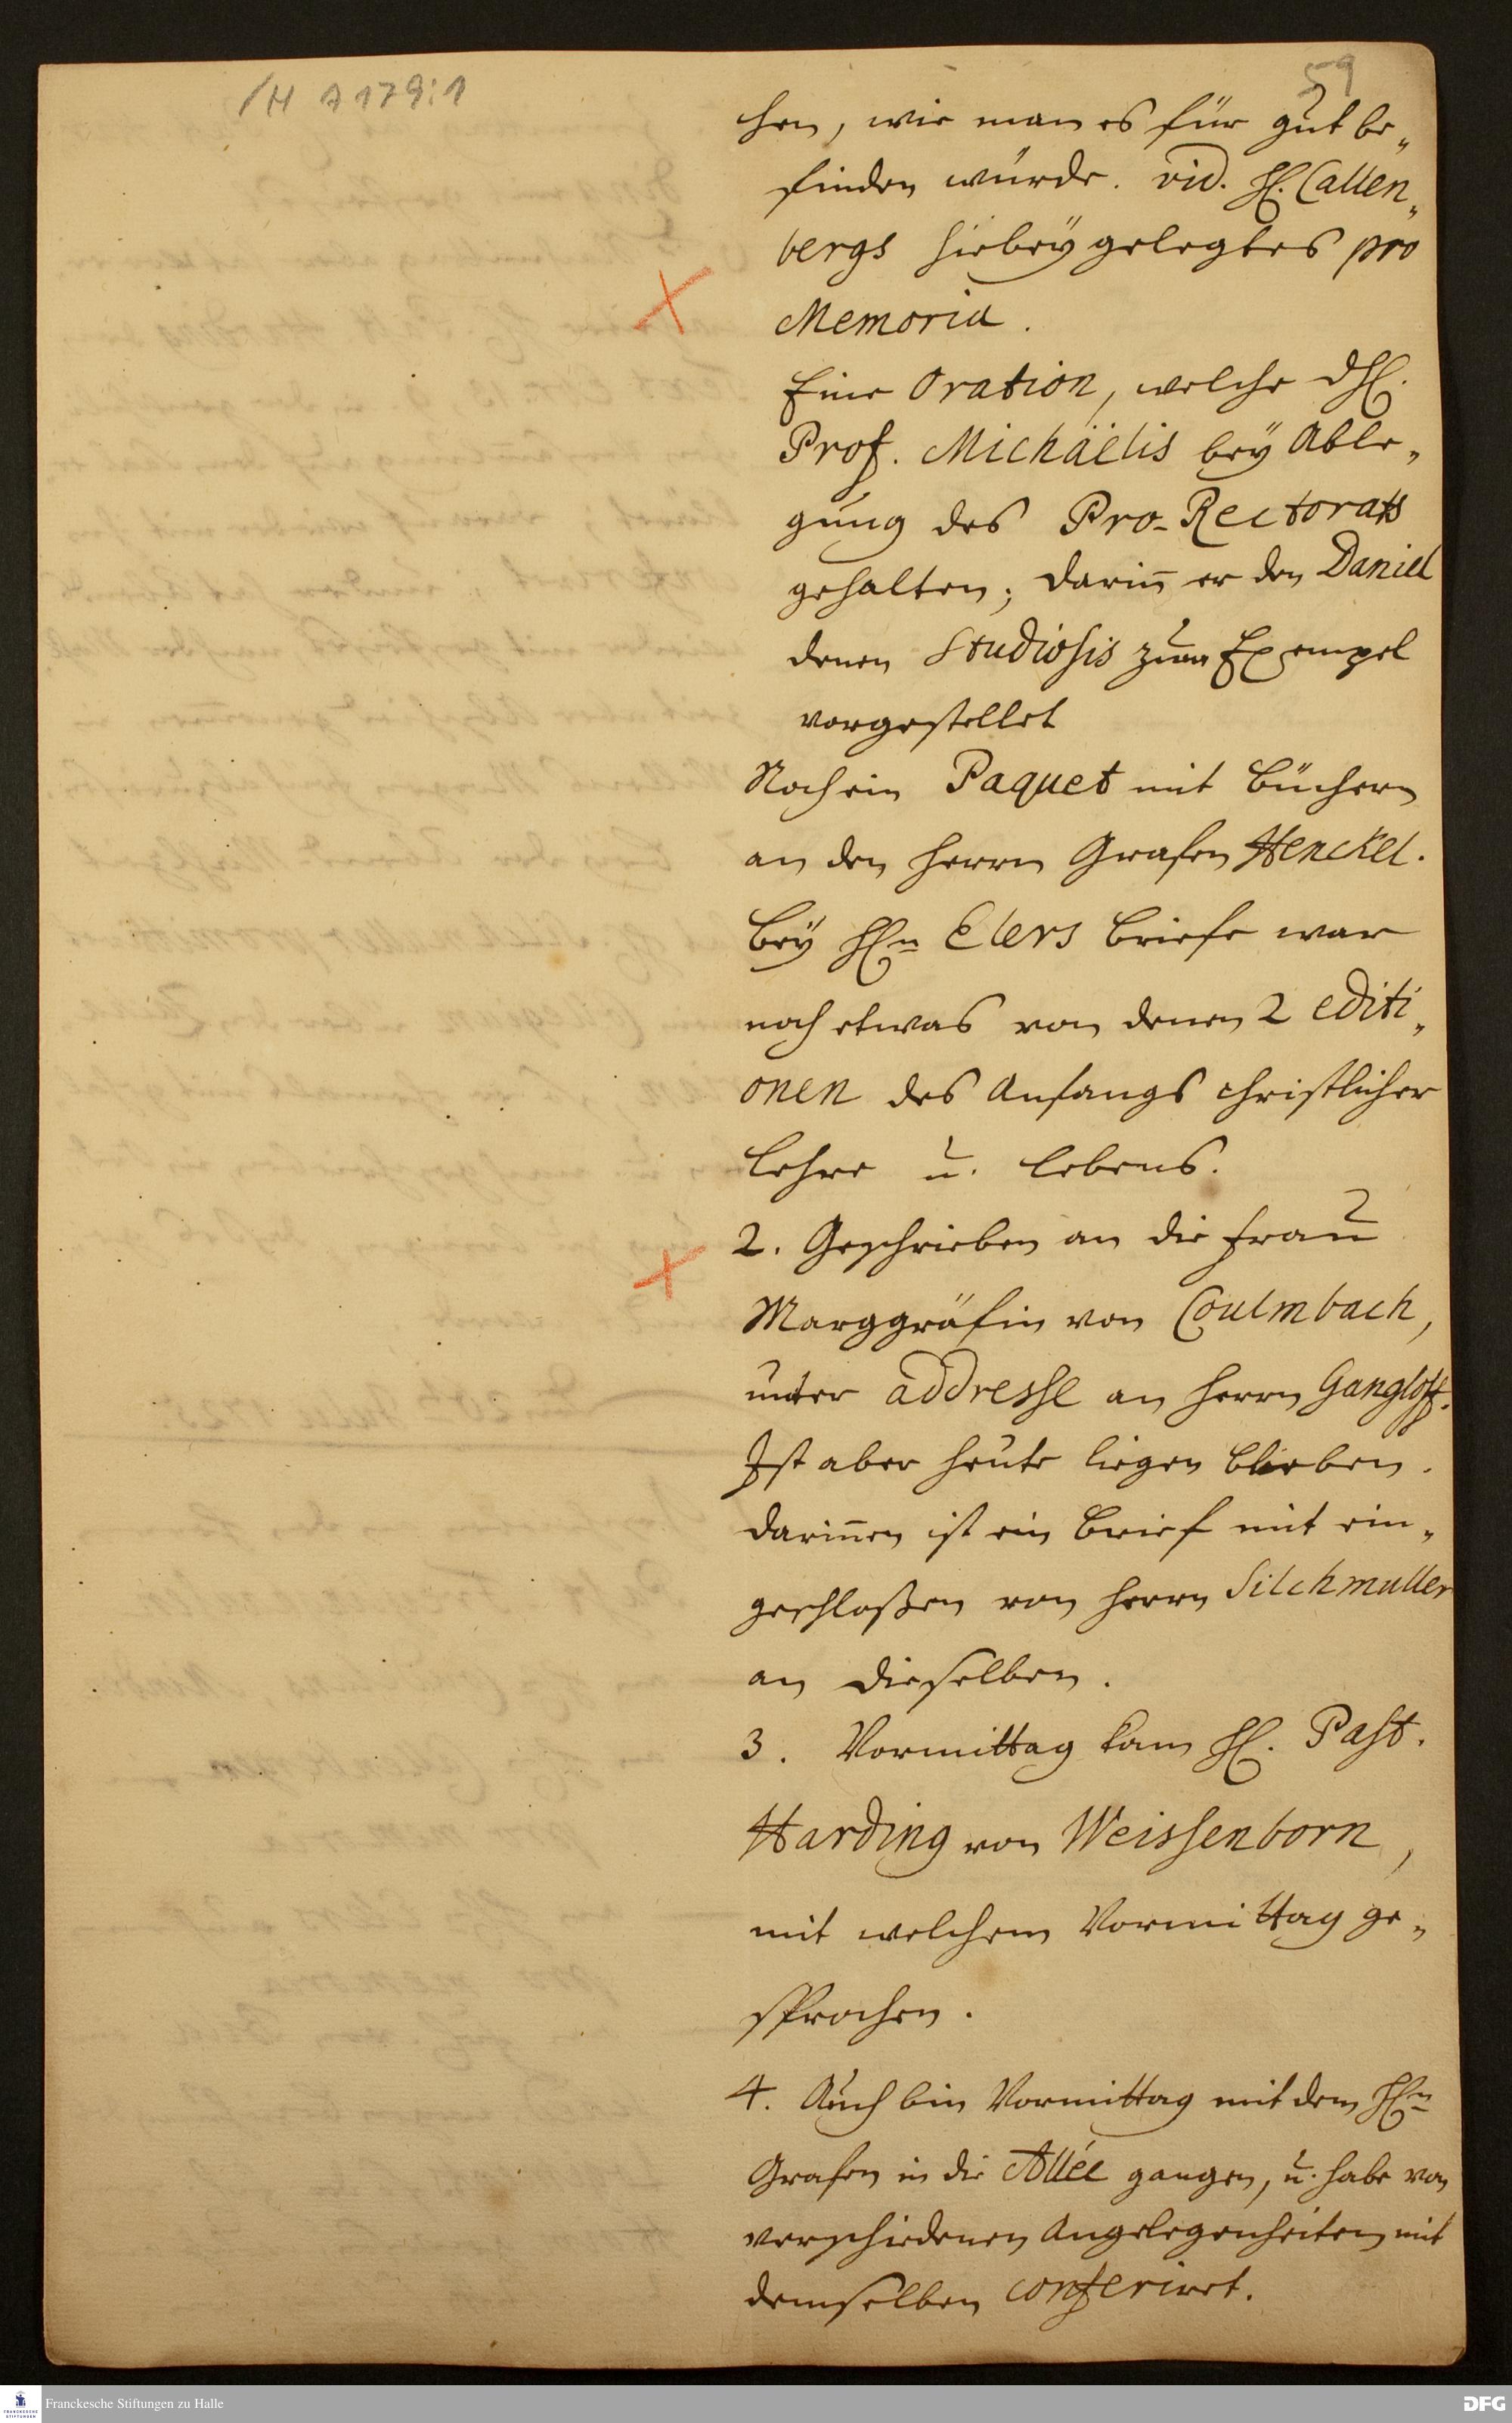 /H A 179:1
59
chen, wie man es für gut be„
finden würde. vid. H. Callen„
bergs hiebey gelegtes pro
Memoria.
Eine Oration, welche dH.
Prof. Michäelis bey Able„
gung des Pro-Rectorats
gehalten; darin̄ er den Daniel
denen Studiosis zum Exempel
vorgestellet
Noch ein Paquet mit Büchern
an den Herrn Grafen Henckel.
Bey Hn Elers Briefe war
noch etwas von denen 2 editi„
onen des Anfangs christlicher
Lehre u. Lebens.
2. Geschrieben an die Frau
Marggräfin von Coulmbach,
unter addresse an Herrn Gangloff.
Ist aber heute liegen blieben.
Darin̄en ist ein Brief mit ein„
geschloßen von Herrn Silchmuller
an dieselben.
3. Vormittag kam H. Past.
Harding von Weissenborn,
mit welchem Vormittag ge„
sprochen.
4. Auch bin Vormittag mit dem Hn
Grafen in die Allée gangen, u. habe von
verschiedenen Angelegenheiten mit
demselben conferiret.
Franckesche Stiftungen zu Halle
DFG